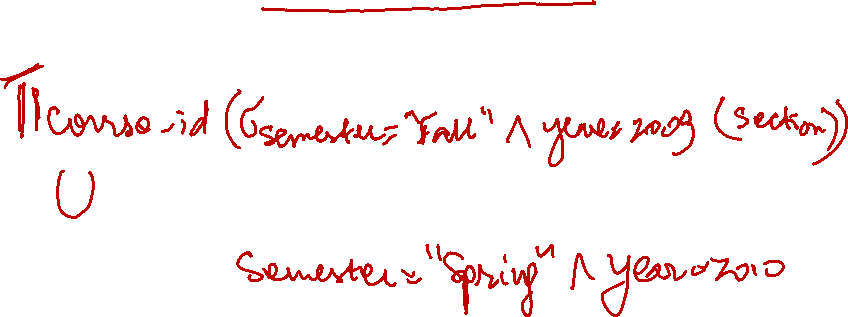 Π course-id (σ semester="Fall" ∧ year=2009 (section))
∪
Semester="Spring" ∧ year=2010